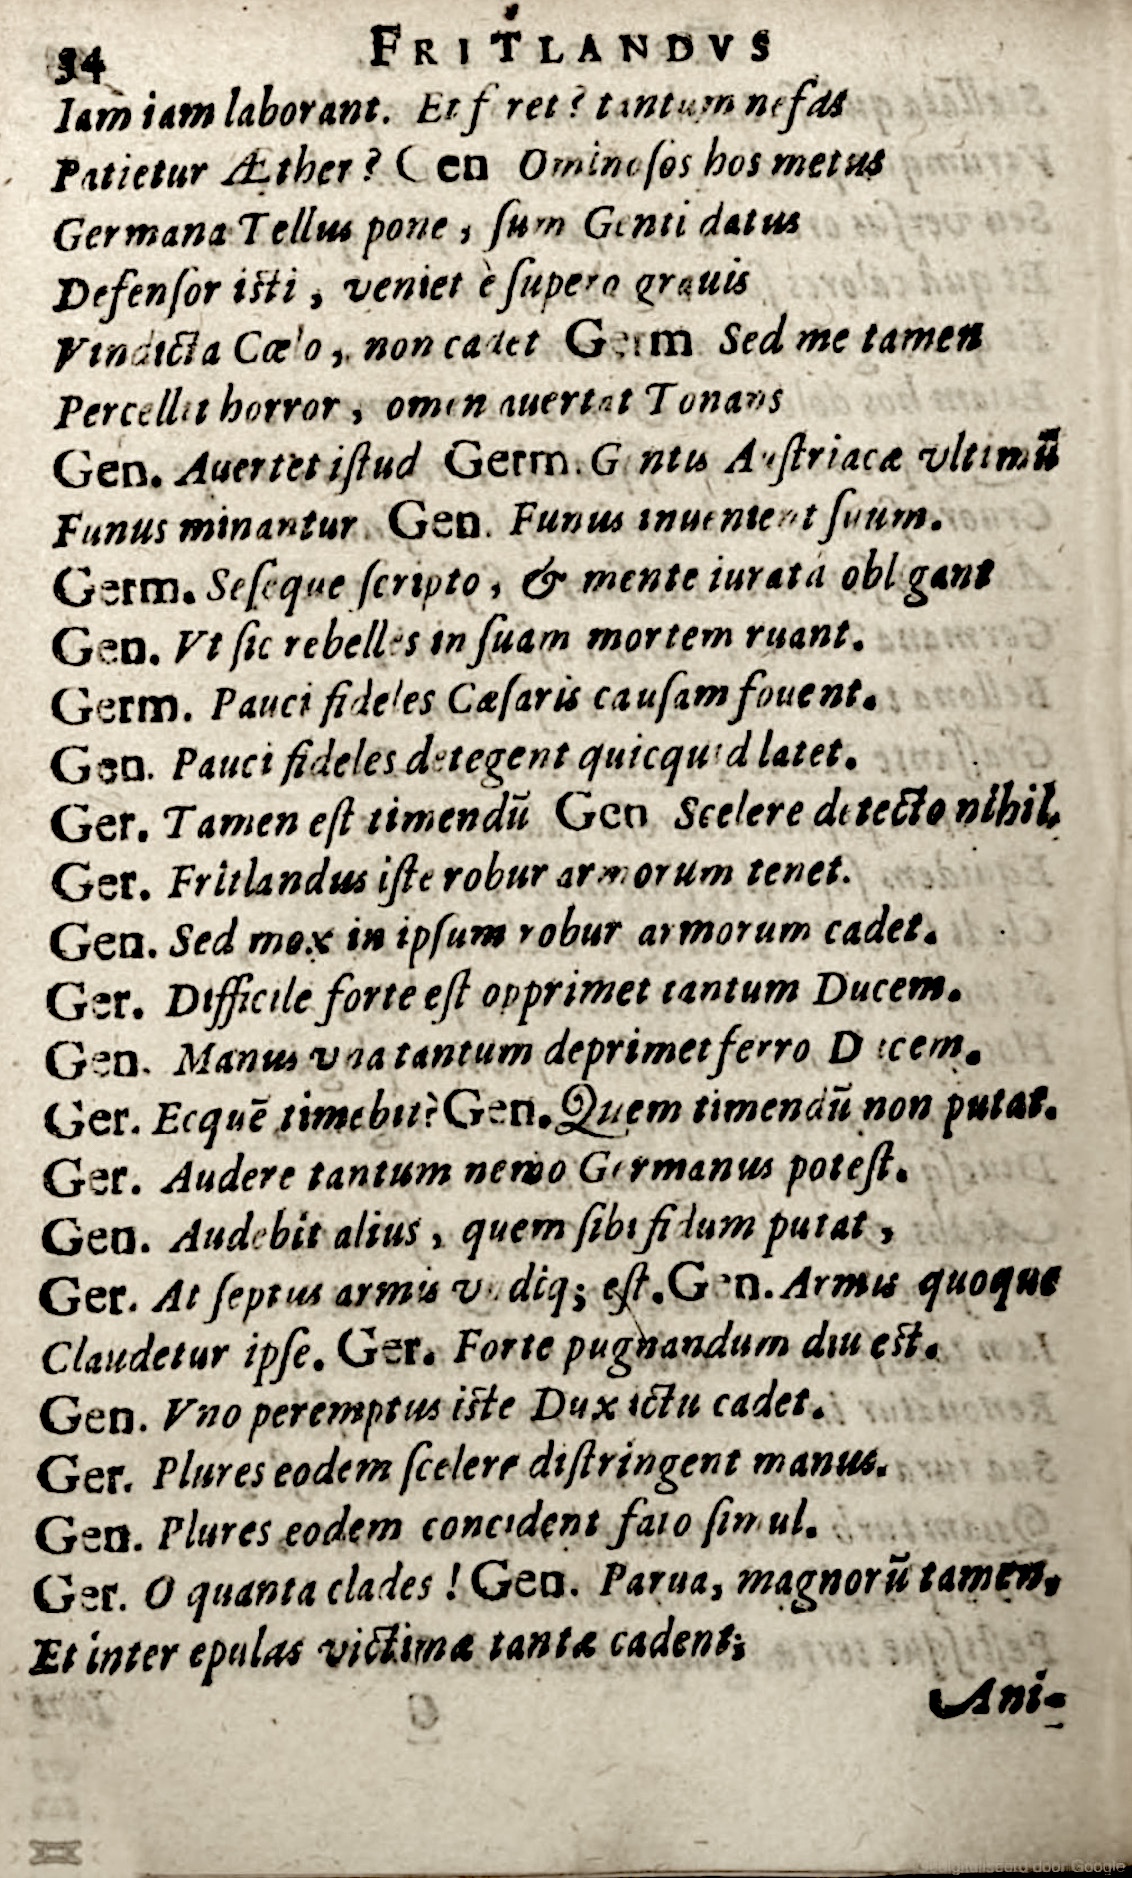 34 FRITLANDVS
Iam iam laborant. Et feret? tantum nefas
Patietur Æther? Gen Ominoſos hos metus
Germana Tellus pone, ſum Genti datus
Defenſor iſti, veniet è ſupero grauis
Vindicta Cælo, non cadet Germ Sed me tamen
Percellit horror, omen auertat Tonans
Gen. Auertet iſtud Germ. Gentis Auſtriacæ vltimū
Funus minantur. Gen. Funus inuenient ſuum.
Germ. Seſeque ſcripto, & mente iuratâ obligant
Gen. Vt ſic rebelles in ſuam mortem ruant.
Germ. Pauci fideles Cæſaris cauſam fouent.
Gen. Pauci fideles detegent quicquid latet.
Ger. Tamen eſt timendū Gen Scelere detecto nihil.
Ger. Fritlandus iſte robur armorum tenet.
Gen. Sed mox in ipſum robur armorum cadet.
Ger. Difficile forte eſt opprimet tantum Ducem.
Gen. Manus vna tantum deprimet ferro Ducem.
Ger. Ecquē timebit? Gen. Quem timendū non putat.
Ger. Audere tantum nemo Germanus poteſt.
Gen. Audebit alius, quem ſibi fidum putat,
Ger. At ſeptus armis vndiq; eſt. Gen. Armis quoque
Claudetur ipſe. Ger. Forte pugnandum diu eſt.
Gen. Vno peremptus iſte Dux ictu cadet.
Ger. Plures eodem ſcelere diſtringent manus.
Gen. Plures eodem concident fato ſimul.
Ger. O quanta clades! Gen. Parua, magnorū tamen,
Et inter epulas victimæ tantæ cadent;
Ani-